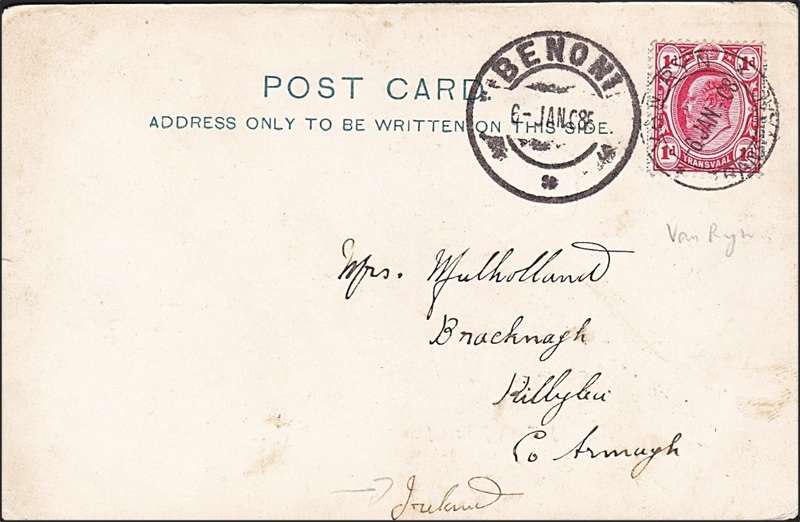 POST CARD
ADDRESS ONLY TO BE WRITTEN ON THIS SIDE.
BENONI
6-JAN 08
1d 1d
6 JAN 08
1d 1d
TRANSVAAL
Van Ryn
Mrs. Mulholland
Bracknagh
Killylea
Co Armagh
Ireland